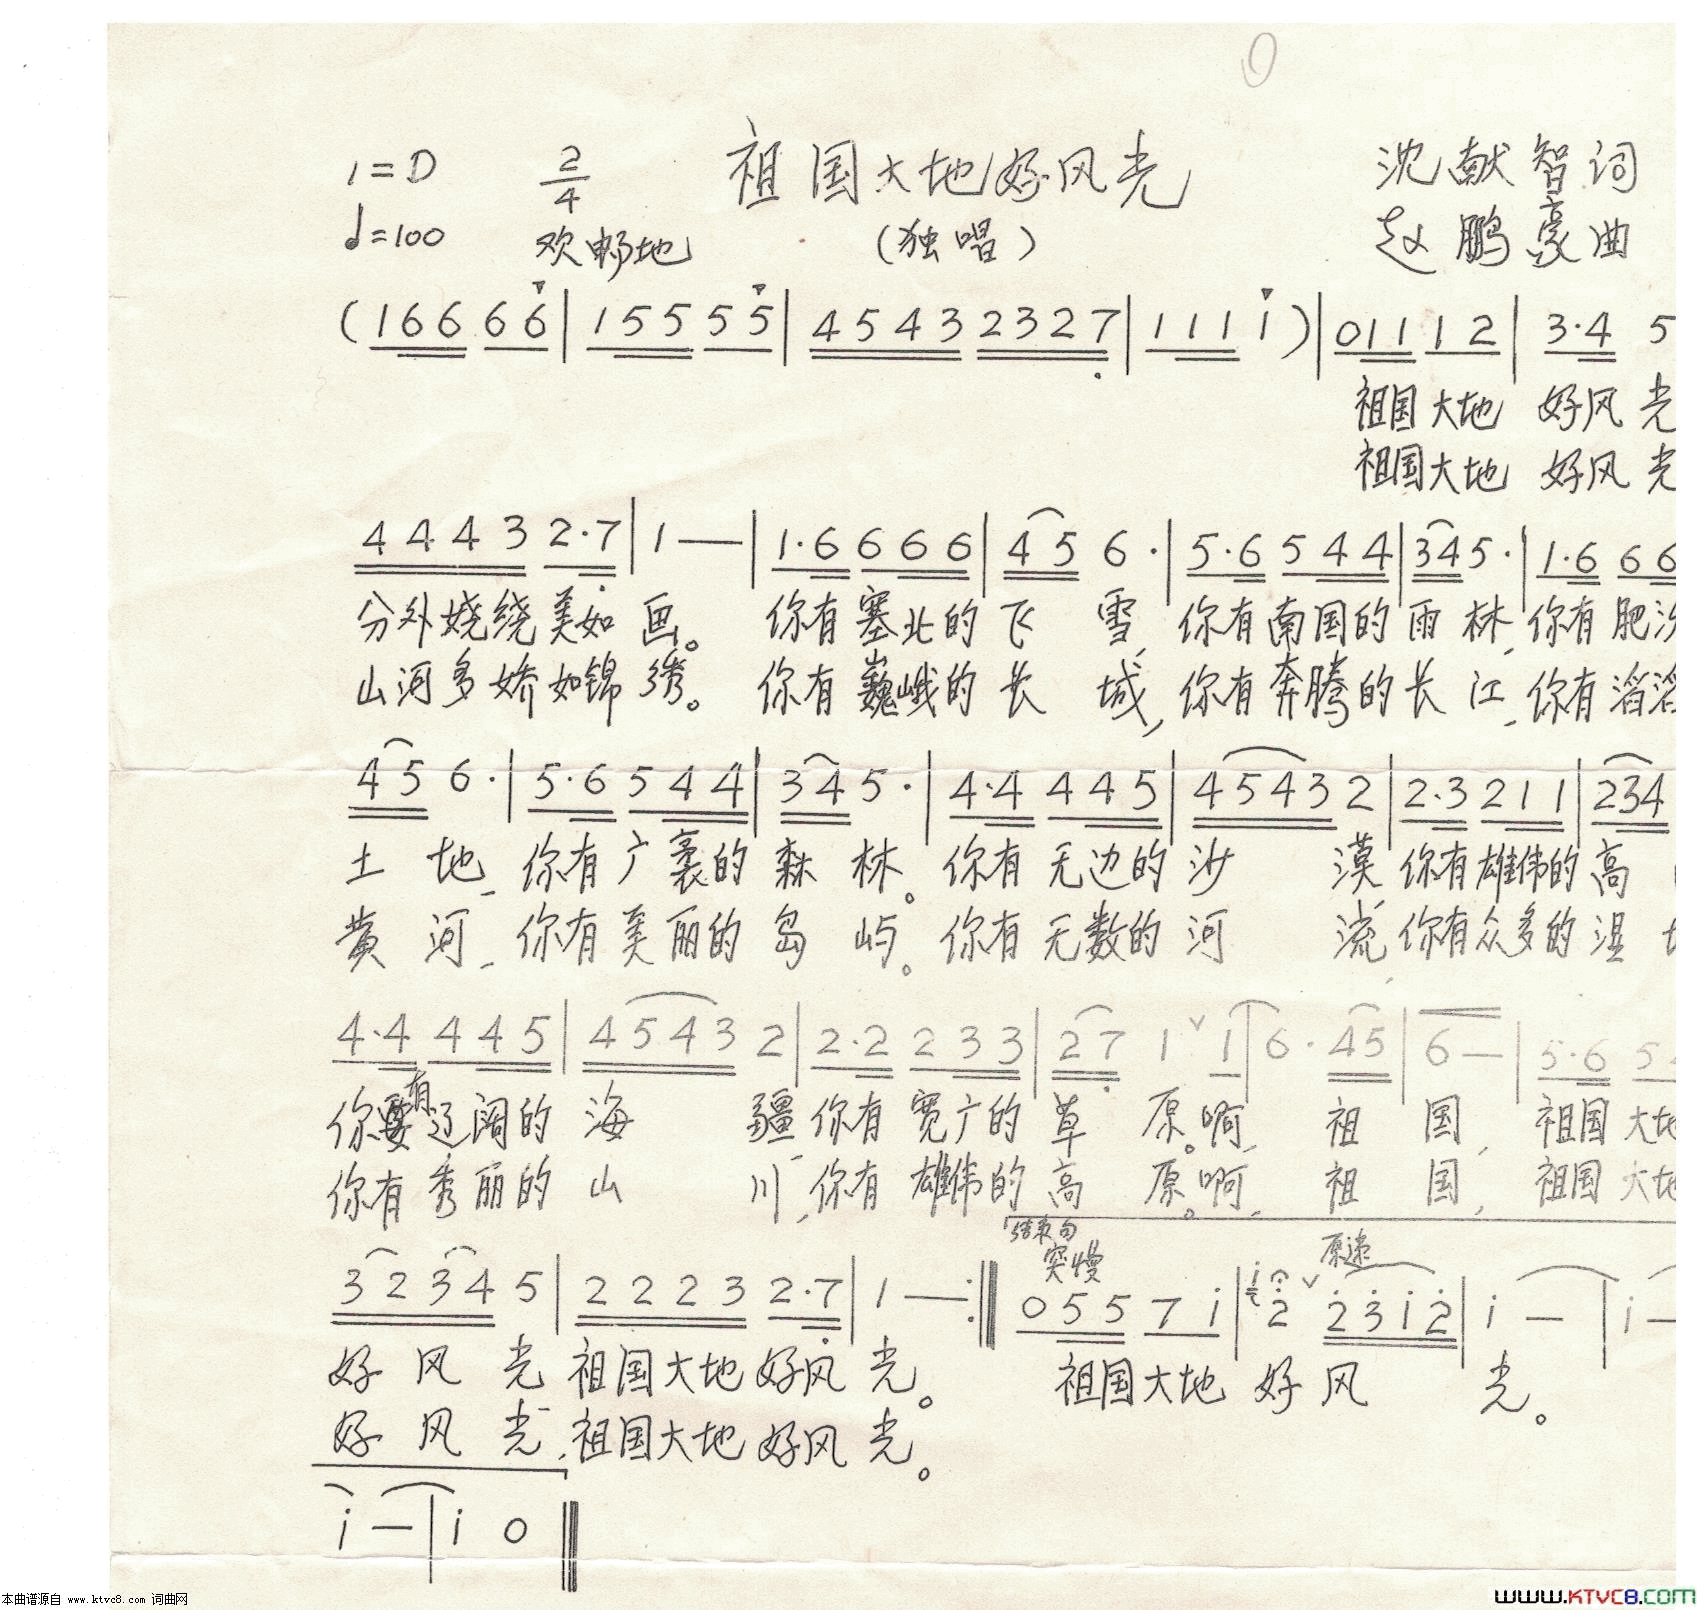 1=D 2/4 祖国大地好风光 沈献智词
♩=100 欢畅地 (独唱) 赵鹏豪曲
(166 66|155 55|4543 2327|111 i)|011 12|3·4 5
祖国大地 好风光
祖国大地 好风光
4443 2·7|1—|1·6 666|45 6·|5·6 544|34 5·|1·6 66
分外娆绕美如画。 你有塞北的飞雪,你有南国的雨林,你有肥沃
山河多娇如锦绣。 你有巍峨的长城,你有奔腾的长江,你有滔滔
45 6·|5·6 544|34 5·|4·4 445|4543 2|2·3 211|234
土地,你有广袤的森林。你有无边的沙漠,你有雄伟的高
黄河,你有美丽的岛屿。你有无数的河流,你有众多的湿
4·4 445|4543 2|2·2 233|27 1 ∨ 1|6· 45|6—|5·6 5
你有辽阔的海疆,你有宽广的草原。啊,祖国,祖国大地
你有秀丽的山川,你有雄伟的高原。啊,祖国,祖国大地
结束句
突慢 原速
3234 5|2223 2·7|1—:‖055 7i|2 ∨ 23i2|i—|i—
好风光,祖国大地好风光。 祖国大地好风光。
好风光,祖国大地好风光。
i—|i 0‖
本曲谱源自 www.ktvc8.com 词曲网
WWW.KTVC8.COM